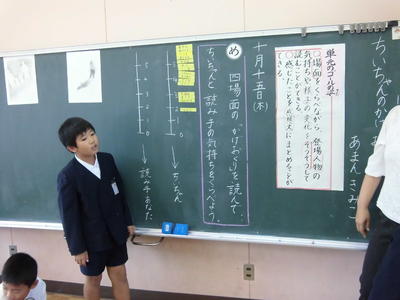 ちいちゃんのかげお
あまん きみこ
単元のゴールの姿
○場面をくらべながら、登場人物の
気持ちや様子の変化をそうぞうして
読むことができる。
○感じたことを感想文にまとめることが
できる。
十月十五日(木)
め
四場面の「かげおくり」を読んで、
ちいちゃんと読み手の気持ちをくらべよう。
5
4
3
2
1
0
→ ちいちゃん
5
4
3
2
1
0
→ 読み手あなた